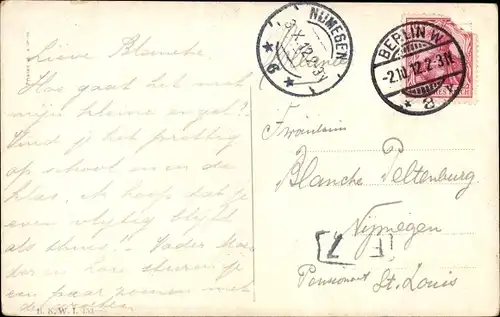 Lieve Blanche
Hoe gaat het met
mijn kleine
Vind je het prettig
op school en in de
klas. Ik hoop dat je
even vlijtig blijft
als thuis!! Vader Moe-
der en sturen je
een paar zoenen met
de
R. K. W. I. 151
NIJMEGEN
X.12.
6
BERLIN W.
-2.10.12.2-3N.
8
Fräulein
Blanche Peltenburg
Nijmegen
F 7
Pensionat St. Louis